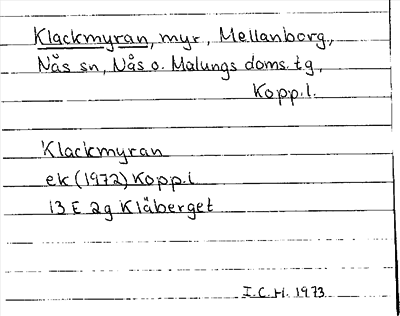 Klackmyran, myr, Mellanborg,
Nås sn, Nås o. Malungs doms. tg,
Kopp.l.
Klackmyran
ek (1972) Kopp.l
13 E 2g Klåberget
I.C.H. 1973